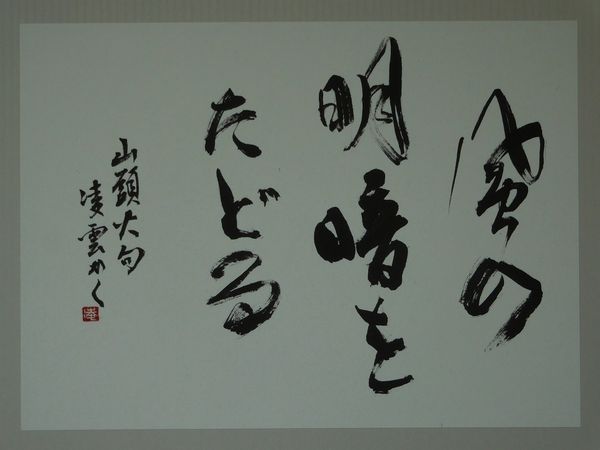 風の
明暗を
たどる
山頭火句
凌雲かく